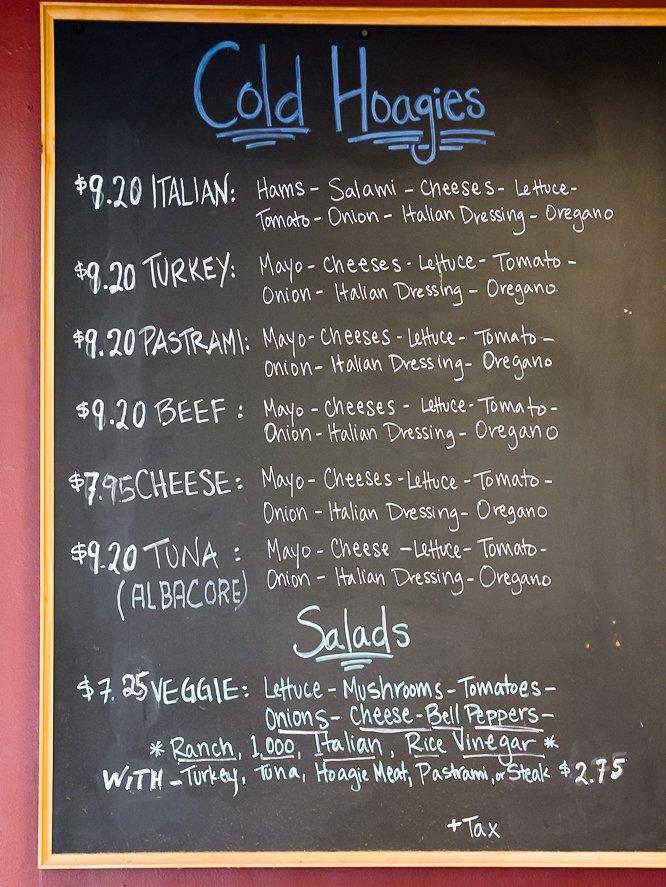 Cold Hoagies
$9.20 ITALIAN: Hams - Salami - Cheeses - Lettuce -
Tomato - Onion - Italian Dressing - Oregano
$9.20 TURKEY: Mayo - Cheeses - Lettuce - Tomato -
Onion - Italian Dressing - Oregano
$9.20 PASTRAMI: Mayo - Cheeses - Lettuce - Tomato -
Onion - Italian Dressing - Oregano
$9.20 BEEF : Mayo - Cheeses - Lettuce - Tomato -
Onion - Italian Dressing - Oregano
$7.95 CHEESE: Mayo - Cheeses - Lettuce - Tomato -
Onion - Italian Dressing - Oregano
$9.20 TUNA : Mayo - Cheese - Lettuce - Tomato -
(ALBACORE) Onion - Italian Dressing - Oregano
Salads
$7.25 VEGGIE: Lettuce - Mushrooms - Tomatoes -
Onions - Cheese - Bell Peppers -
* Ranch, 1,000, Italian, Rice Vinegar *
WITH - Turkey, Tuna, Hoagie Meat, Pastrami, or Steak $2.75
+ Tax